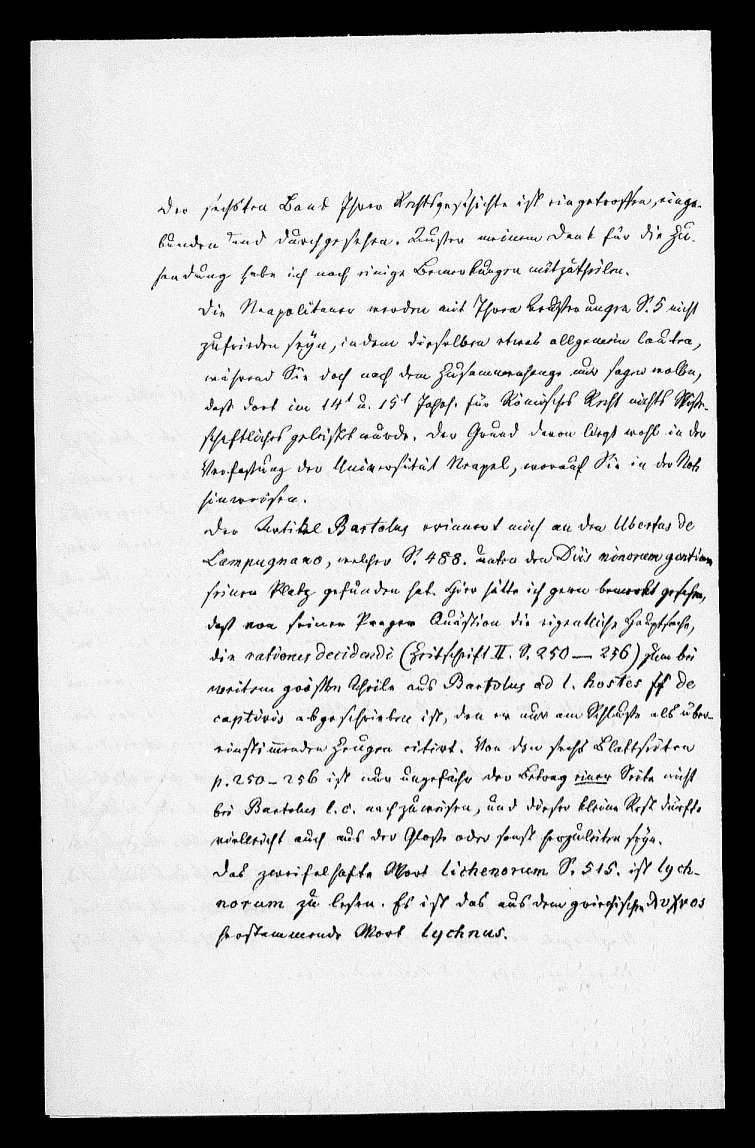 Der sechsten Band Ihrer Rechtsgeschichte ist eingetroffen, einge-
bunden und durchgesehen. Außer meinem Dank für die Zu-
sendung habe ich noch einige Bemerkungen mitzutheilen.
Die Neapolitaner werden mit Ihren Äußerungen S. 5 nicht
zufrieden seyn, indem dieselben etwas allgemein lauten,
während Sie doch nach dem Zusammenhange nur sagen wollen,
daß dort im 14t u. 15t Jahrh. für Römisches Recht nichts Wissen-
schaftliches geleistet wurde. Der Grund davon liegt wohl in der
Verfassung der Universität Neapel, worauf Sie in der Note
hinweisen.
Der Artikel Bartolus erinnert mich an den Ubertus de
Lampugnano, welcher S. 488. unter den Diis minorum gentium
seinen Platz gefunden hat. Hier hätte ich gern bemerkt gesehen,
daß von seiner Prager Quästion die eigentliche Hauptsache,
die rationes decidendi (Zeitschrift II. S. 250 — 256) zum bei
weitem größten Theile aus Bartolus ad l. hostes ff de
captivis abgeschrieben ist, den er nur am Schluße als überein-
einstimmenden Zeugen citirt. Von den sechs Blattseiten
p. 250 – 256 ist nur ungefähr der Betrag einer Seite nicht
bei Bartolus l. c. nachzuweisen, und dieser kleine Rest dürfte
vielleicht auch aus der Glosse oder sonst herzuleiten seyn.
Das zweifelhafte Wort lichenorum S. 515. ist lych-
norum zu lesen. Es ist das aus dem griechischen λυχνος
herstammende Wort lychnus.